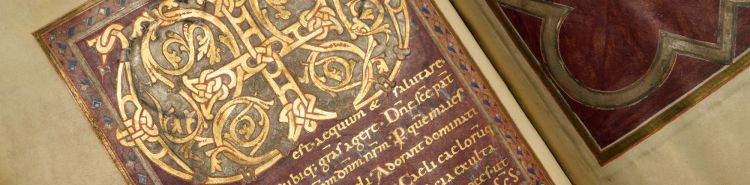 est. aequum & salutare.
ubiq; gras agere. Dne sce pat
dnm nrm. P quē maies
Adorant dominati
Caeli caelorūq
exulta